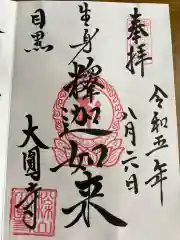 奉拝
令和五年
八月六日
生身
釋迦如来
目黒
大圓寺